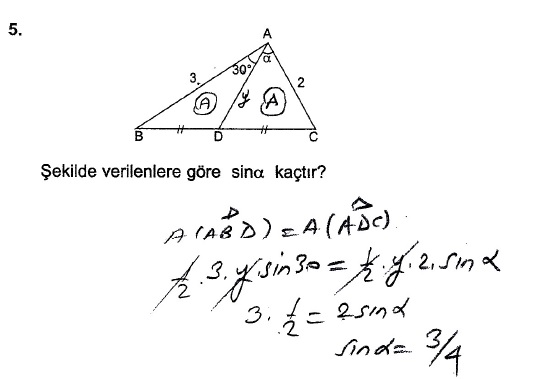 5.
A
30°
α
3.
2
y
A
A
B
D
C
Şekilde verilenlere göre sinα kaçtır?
A(ABD) = A(ADC)
1/2 . 3. y. sin30 = 1/2 . y. 2. sinα
3. 1/2 = 2sinα
sinα = 3/4